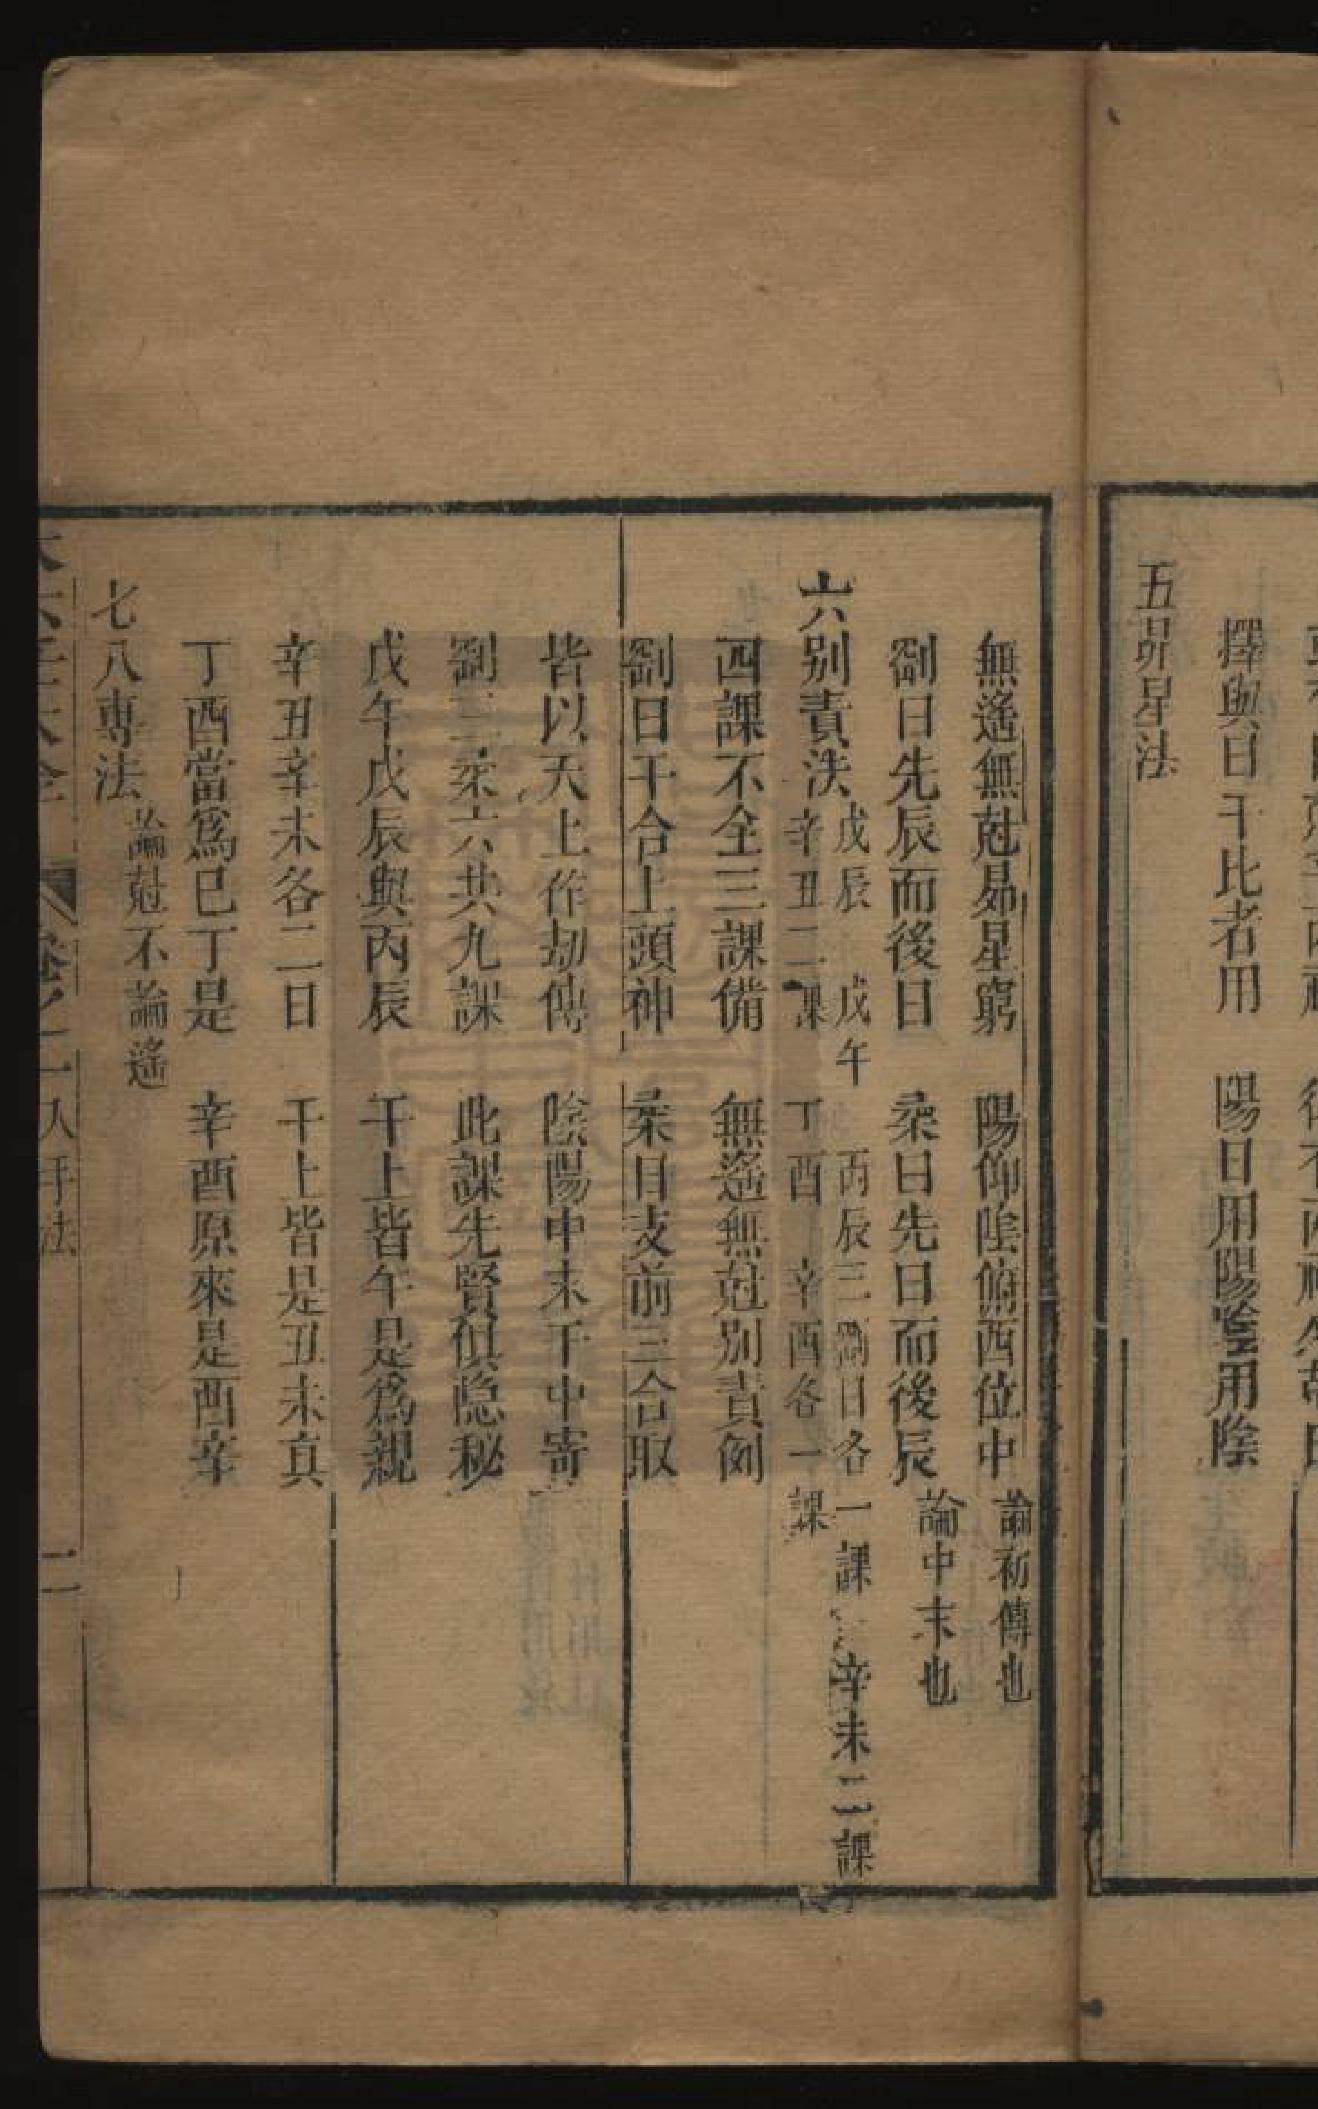 擇與日干比者用　陽日用陽陰用陰
五昴星法
無遙無尅昴星窮　陽仰陰俯酉位中　論初傳也
剛日先辰而後日　柔日先日而後辰　論中末也
六別責法　戊辰　戊午　丙辰三剛日各一課　辛未二課
辛丑二課　丁酉　辛酉各一課
四課不全三課備　無遙無尅別責例
剛日干合上頭神　柔日支前三合取
皆以天上作初傳　陰陽中末干中寄
剛三柔六共九課　此課先賢俱隐秘
戊午戊辰與丙辰　干上皆午是爲親
辛丑辛未各二日　干上皆是丑未真
丁酉當爲巳丁是　辛酉原來是酉辛
七八專法　論尅不論遙
大六壬大全　卷之一　入手法　二